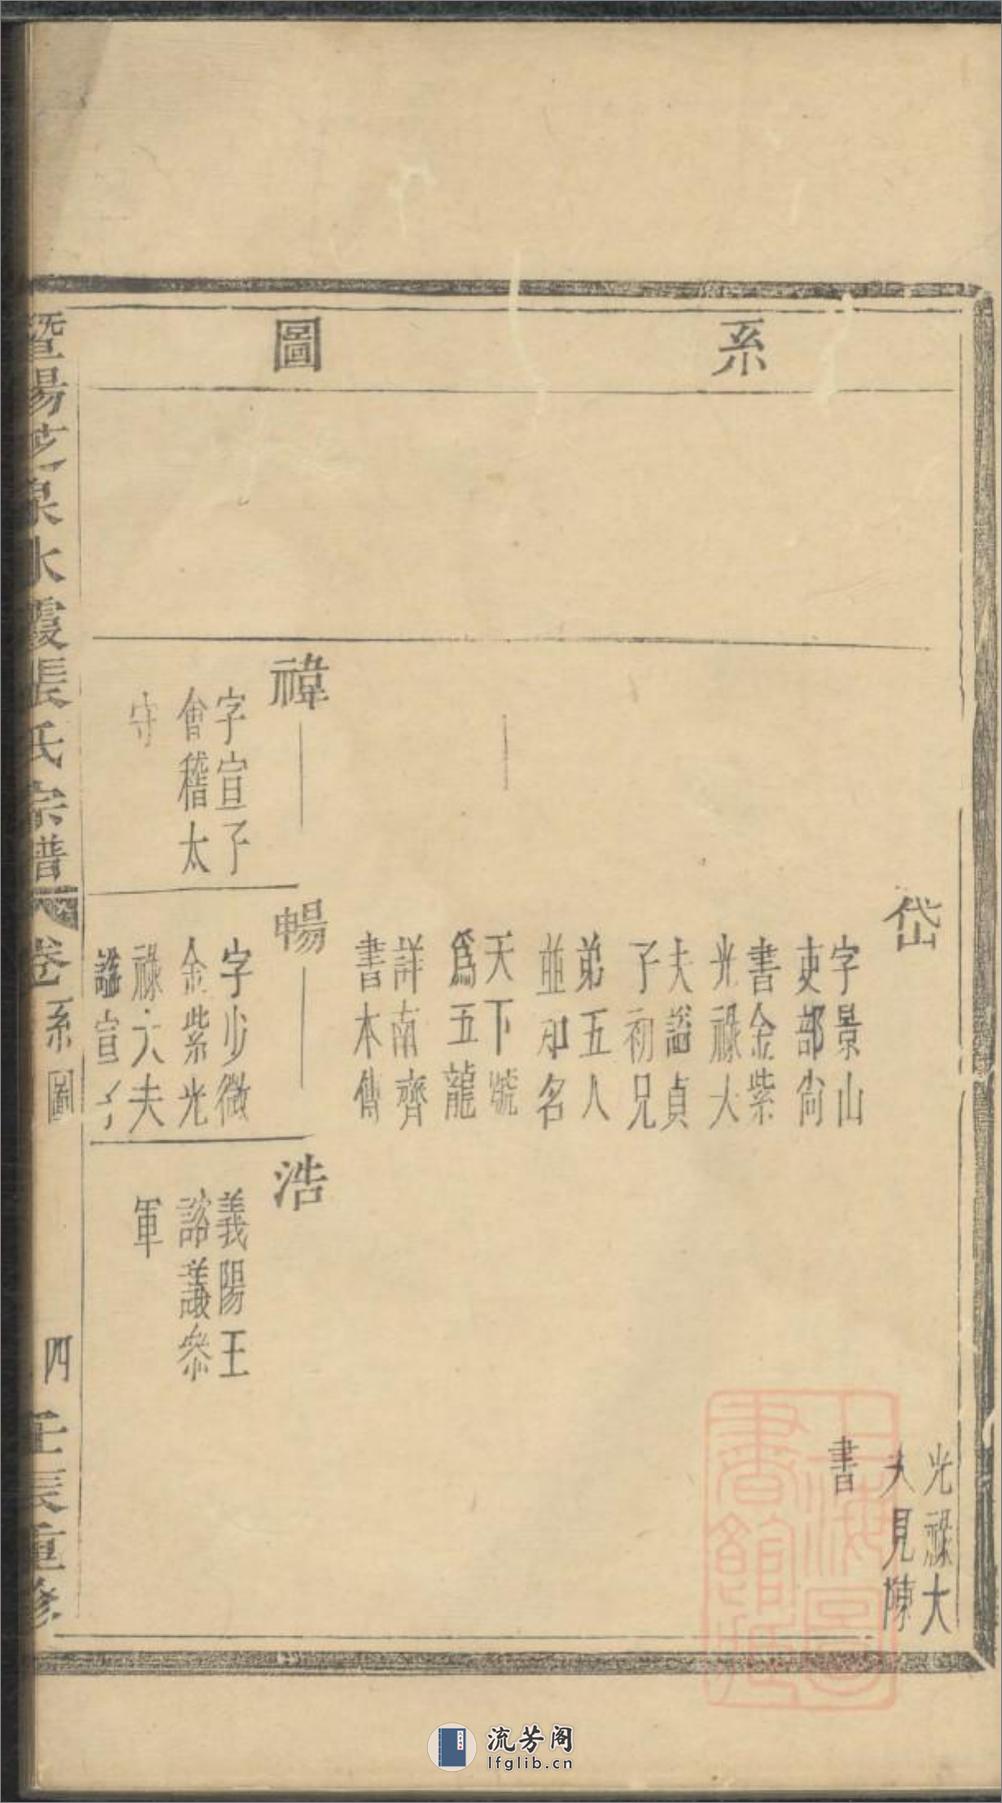 系圖
光祿大
夫見陳
書
岱
字景山
吏部尙
書金紫
光祿大
夫諡貞
子初兄
弟五人
並知名
天下號
爲五龍
詳南齊
書本傳
禕
字宣子
會稽太
守
暢
字少微
金紫光
祿大夫
諡宣子
浩
義陽王
諮議參
軍
暨陽芝泉水霞張氏宗譜
卷 系圖
四
壬辰重修
上海圖書館藏
流芳阁
lfglib.cn